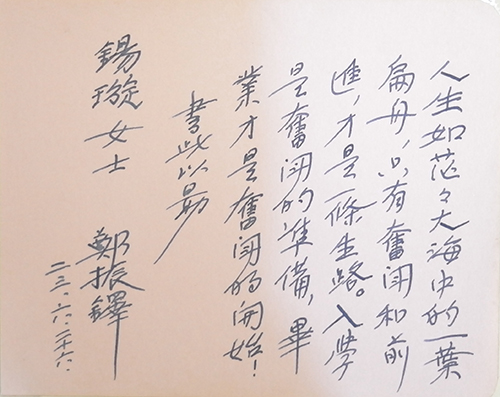 人生如茫々大海中的一葉
扁舟，只有奮鬥和前
進，才是一條生路。入學
是奮鬥的準備，畢
業才是奮鬥的開始！
書此以勗
錫璇女士
鄭振鐸
二三．六．二十六．